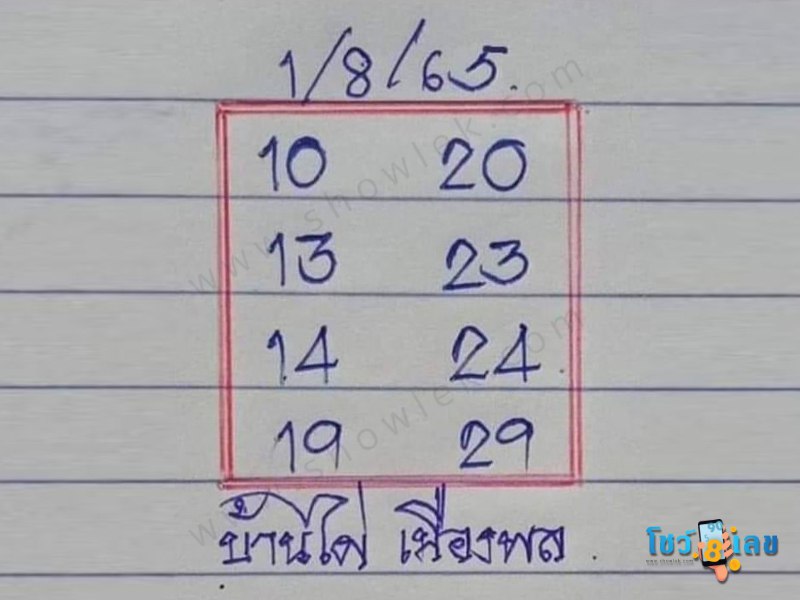 1/8/65.
10 20
13 23
14 24
19 29
บ้านไผ่ เมืองพล.
www.showlek.com
www.showlek.com
โชว์เลข
www.showlek.com